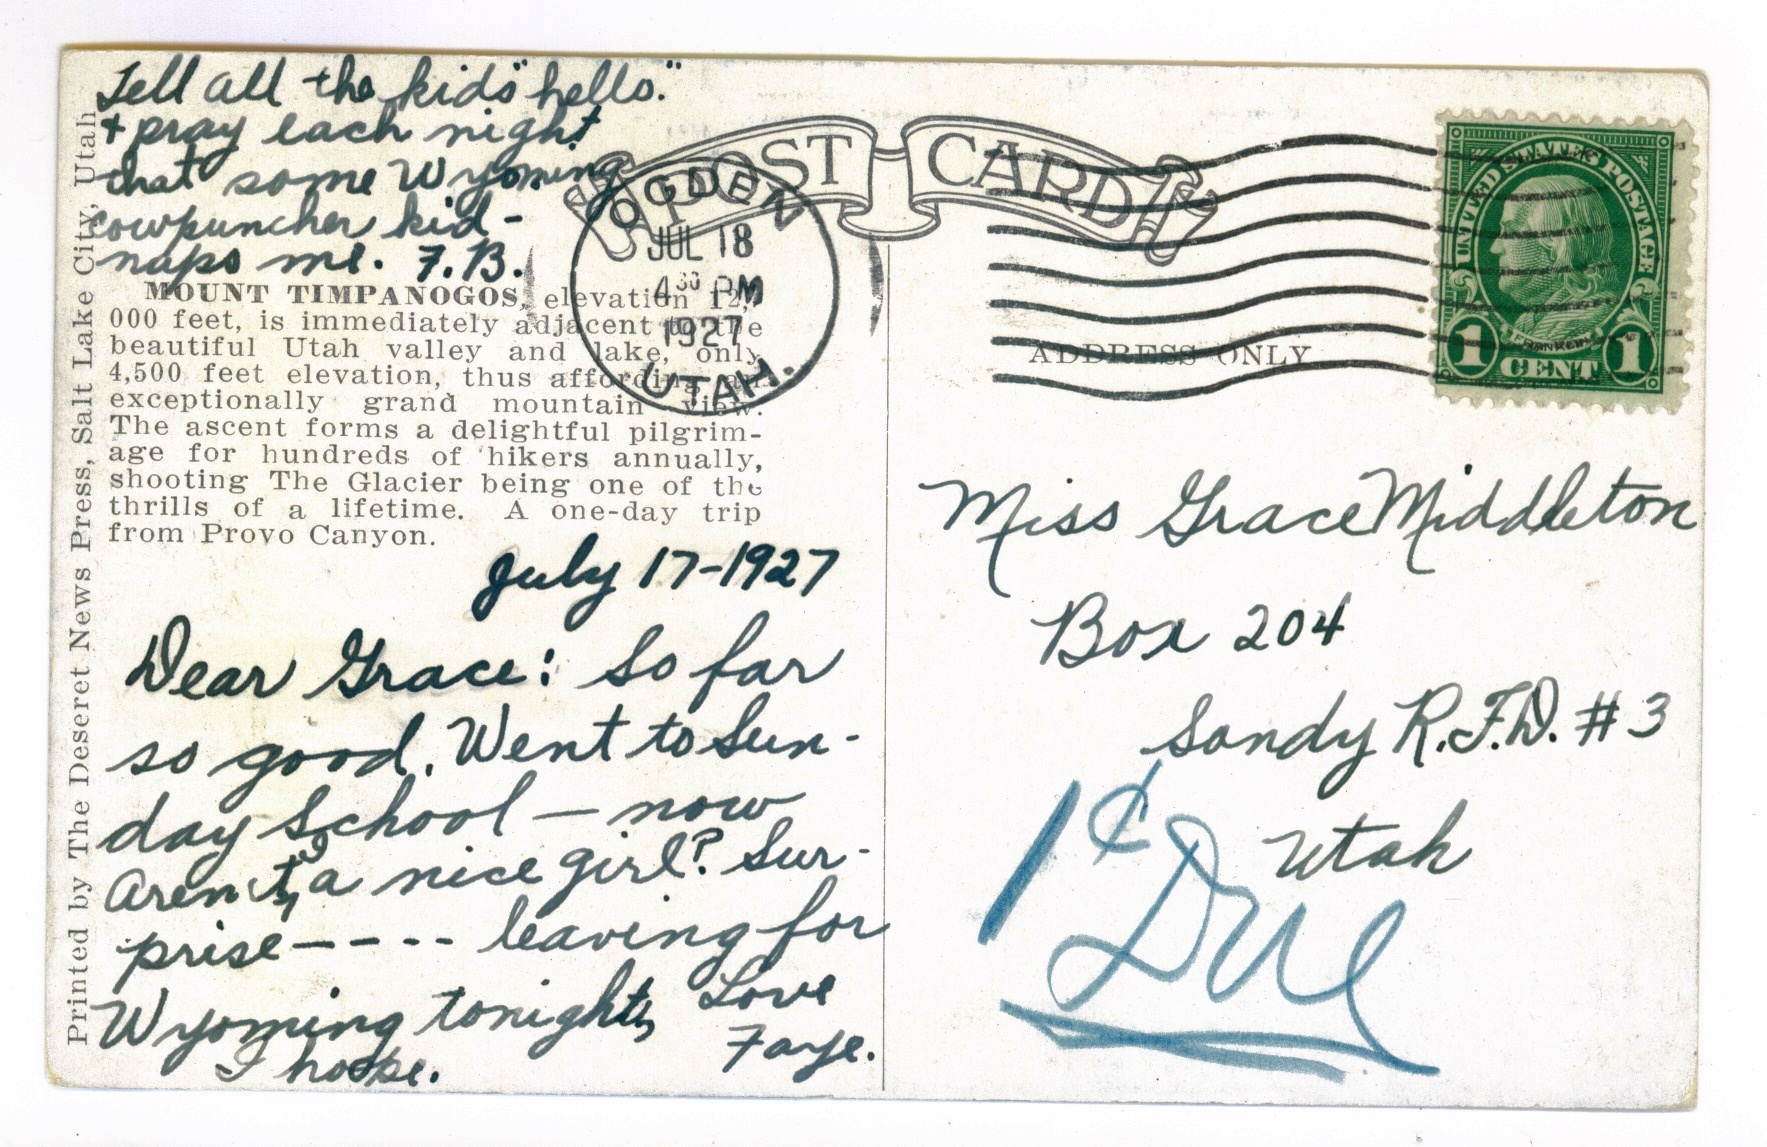 Tell all the kids "hello."
+ pray each night
that some Wyoming
cowpuncher kid-
naps me. F.B.
MOUNT TIMPANOGOS, elevation 12,-
000 feet, is immediately adjacent to the
beautiful Utah valley and lake, only
4,500 feet elevation, thus affording an
exceptionally grand mountain view.
The ascent forms a delightful pilgrim-
age for hundreds of hikers annually,
shooting The Glacier being one of the
thrills of a lifetime. A one-day trip
from Provo Canyon.
July 17-1927
Dear Grace: So far
so good. Went to Sun-
day School — now
Aren't I a nice girl? Sur-
prise ---- leaving for
Wyoming tonight,
I hope.
Love
Faye.
Printed by The Deseret News Press, Salt Lake City, Utah
POST CARD
OGDEN
JUL 18
4 30 PM
1927
UTAH.
ADDRESS ONLY
UNITED STATES POSTAGE
FRANKLIN
1 CENT 1
Miss Grace Middleton
Box 204
Sandy R.F.D. #3
Utah
1¢
Due